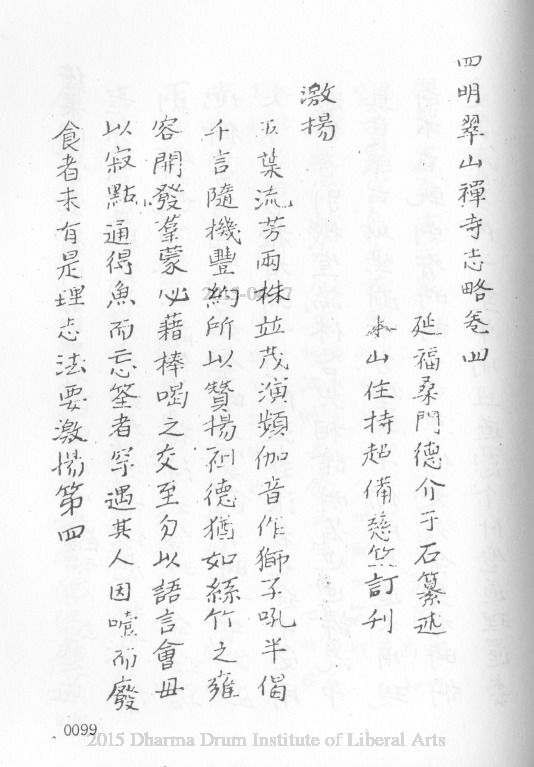 四明翠山禪寺志略卷四
延福桑門德介于石纂述
本山住持超備慈筏訂刊
激揚
五葉流芳兩株並茂演頻伽音作獅子吼半偈
千言隨機豐約所以贊揚祖德猶如絲竹之雍
容開發羣蒙必藉棒喝之交至勿以語言會毋
以寂點通得魚而忘筌者罕遇其人因噎而廢
食者未有是理志法要激揚第四
0099
2015 Dharma Drum Institute of Liberal Arts